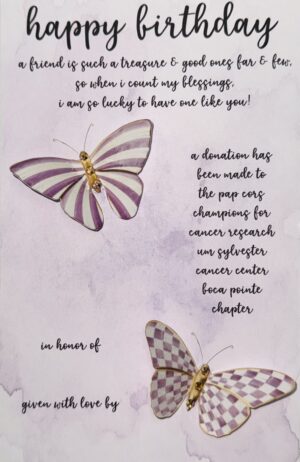 happy birthday
a friend is such a treasure & good ones far & few,
so when i count my blessings,
i am so lucky to have one like you!
a donation has
been made to
the pap cors
champions for
cancer research
um sylvester
cancer center
boca pointe
chapter
in honor of
given with love by